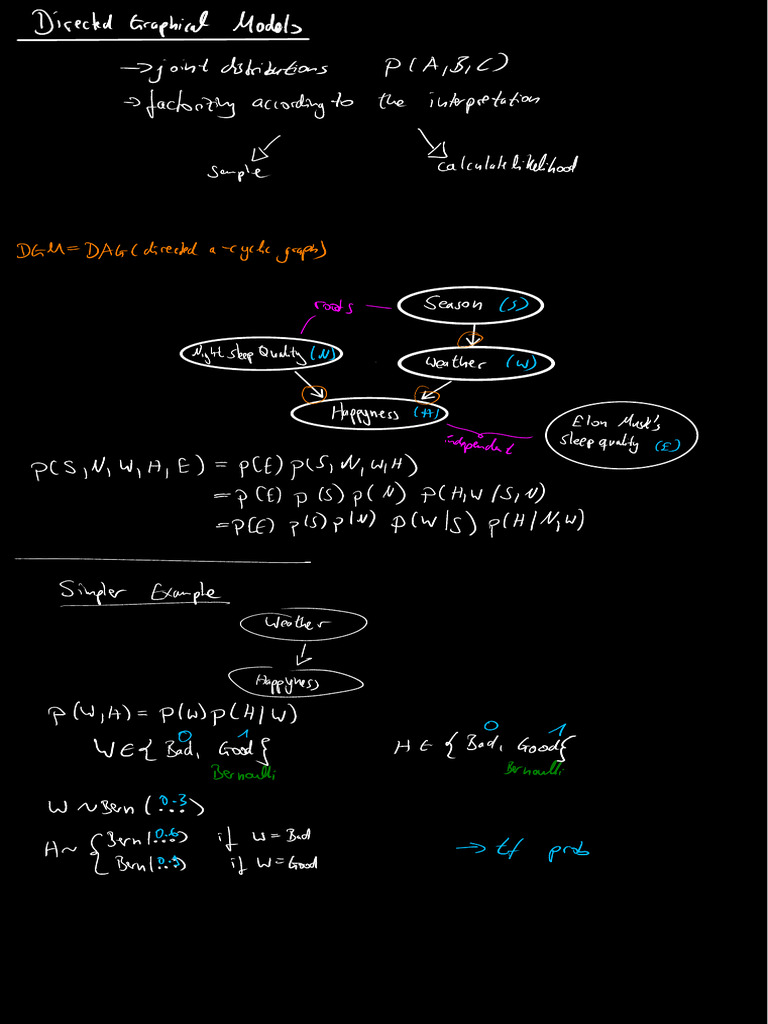 Directed Graphical Models
→ joint distributions P(A,B,C)
→ factorizing according to the interpretation
sample
calculate likelihood
DGM = DAG (directed a-cyclic graph)
roots
Season (S)
Night sleep Quality (N)
Weather (W)
Happyness (H)
Elon Musk's
sleep quality (E)
independent
p(S,N,W,H,E) = p(E) p(S,N,W,H)
= p(E) p(S) p(N) p(H,W|S,N)
= p(E) p(S) p(N) p(W|S) p(H|N,W)
Simpler Example
Weather
Happyness
p(W,H) = p(W) p(H|W)
0 1
W ∈ { Bad, Good }
Bernoulli
0 1
H ∈ { Bad, Good }
Bernoulli
W ~ Bern (0.3)
H ~ { Bern(0.6) if W = Bad
{ Bern(0.9) if W = Good
→ tf prob